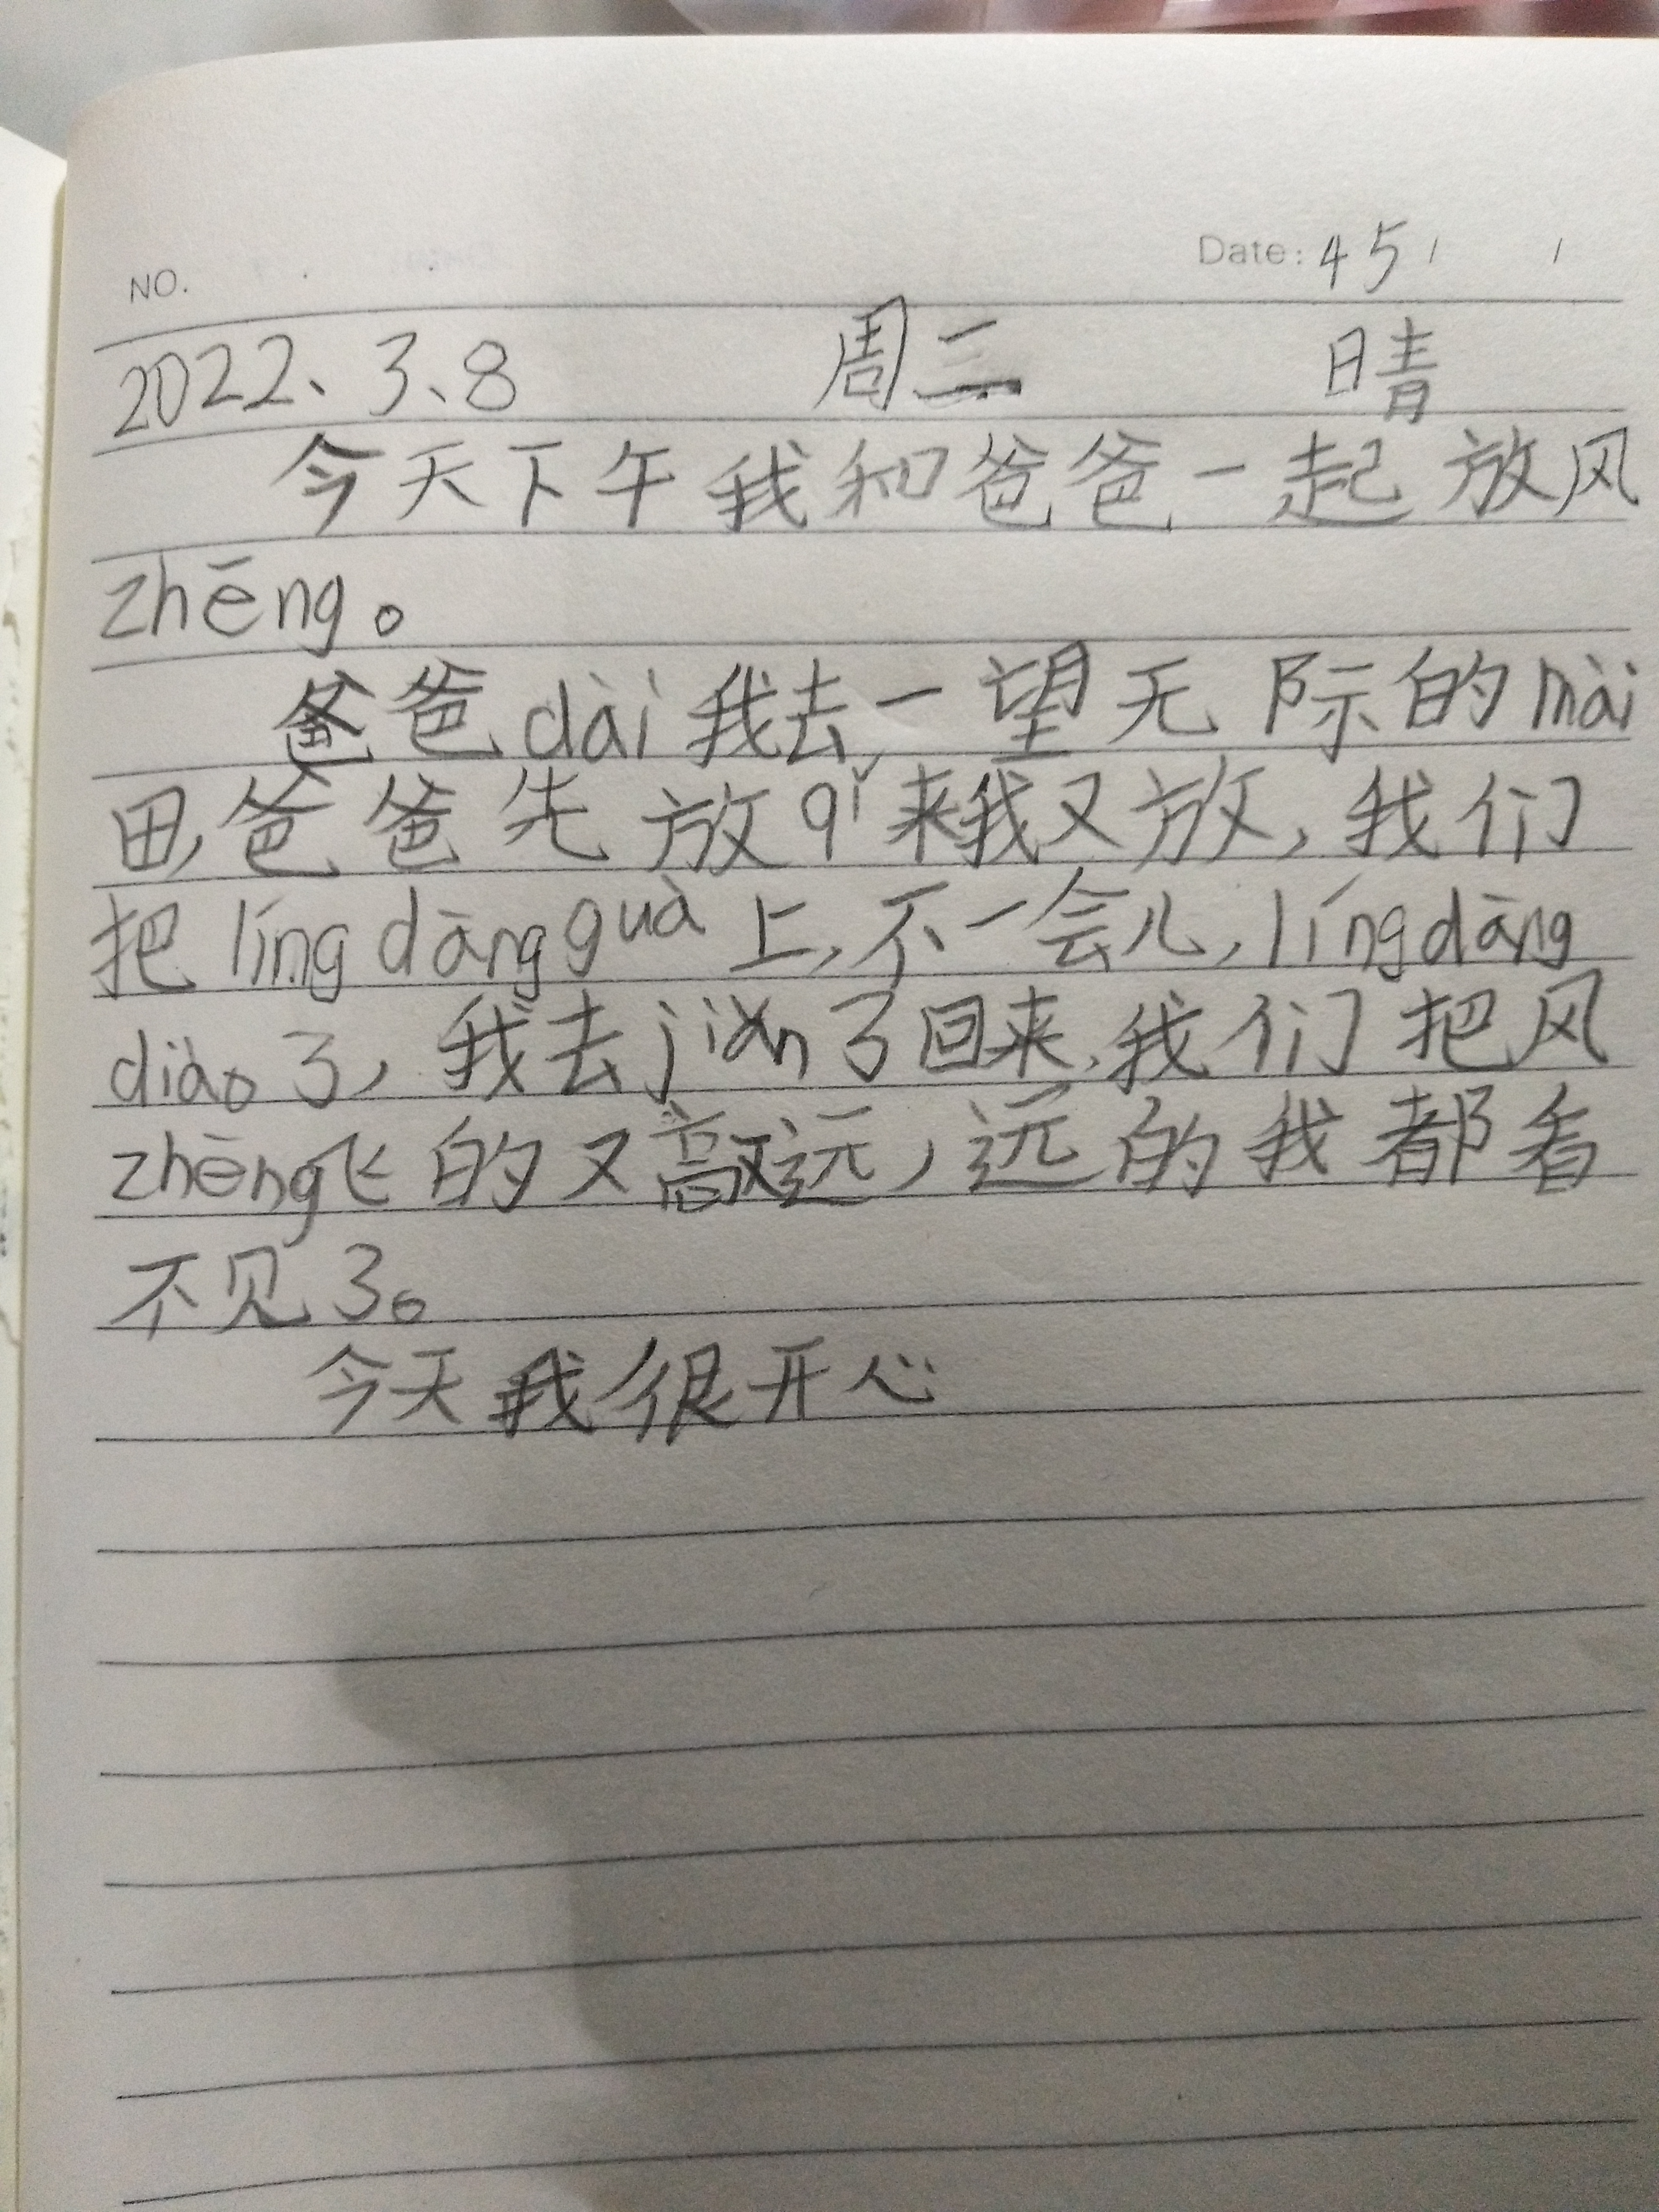 NO.
Date: 45 / /
2022、3、8 周二 晴
今天下午我和爸爸一起放风
zhēng。
爸爸dài我去一望无际的mài
田,爸爸先放qǐ来我又放,我们
把língdāngguà上,不一会儿,língdāng
diào了,我去jiǎn了回来,我们把风
zhēng飞的又高又远,远的我都看
不见了。
今天我很开心